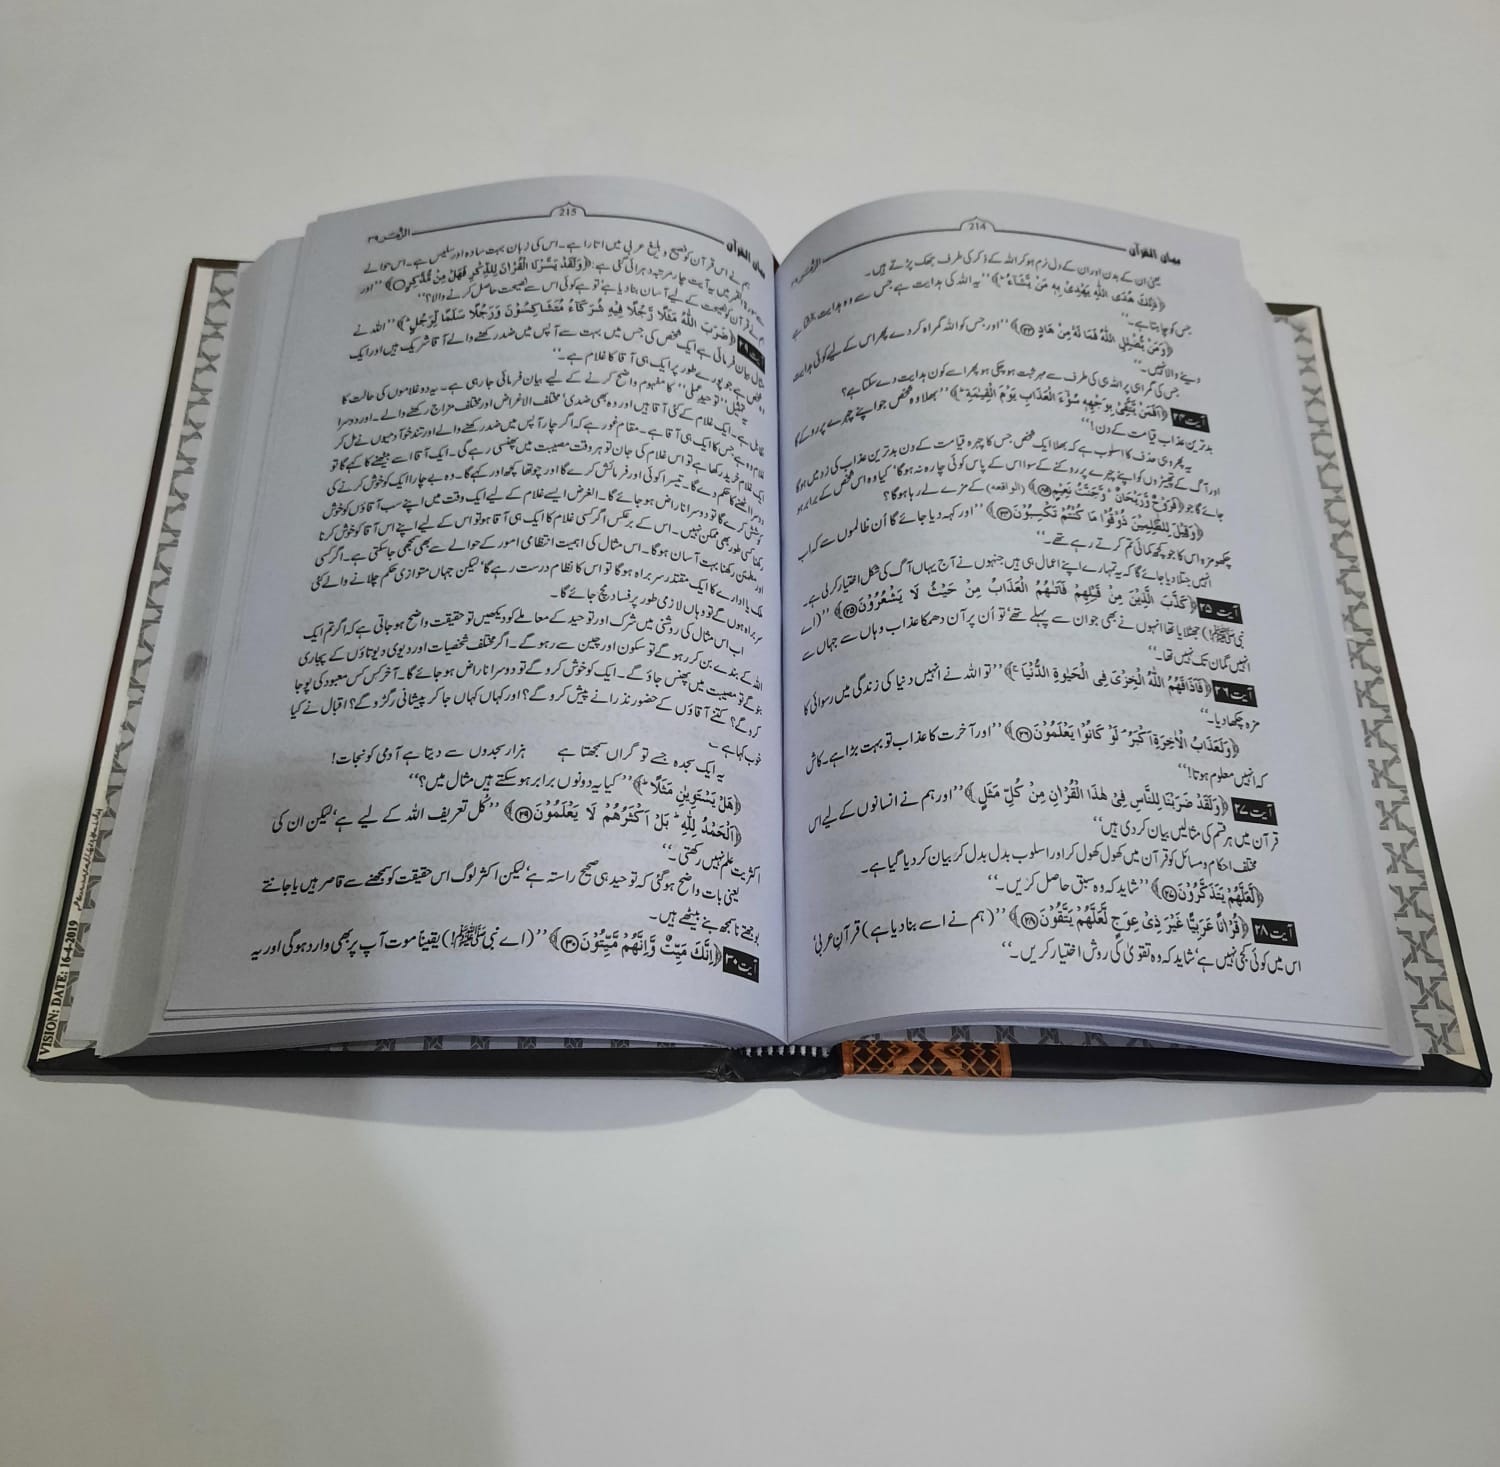 بیان القرآن
214
الزُّمَر ۳۹
یعنی ان کے بدن اور ان کے دل نرم ہو کر اللہ کے ذکر کی طرف جھک پڑتے ہیں۔
﴿ذٰلِكَ هُدَى اللّٰهِ يَهْدِىْ بِهٖ مَنْ يَّشَآءُ ؕ﴾ ’’یہ اللہ کی ہدایت ہے جس سے وہ ہدایت بخشتا ہے
جس کو چاہتا ہے۔‘‘
﴿وَمَنْ يُّضْلِلِ اللّٰهُ فَمَا لَهٗ مِنْ هَادٍ ۝۲۳﴾ ’’اور جس کو اللہ گمراہ کر دے پھر اس کے لیے کوئی ہدایت
دینے والا نہیں۔‘‘
جس کی گمراہی پر اللہ ہی کی طرف سے مہر ثبت ہو چکی ہو پھر اسے کون ہدایت دے سکتا ہے؟
آیت ۲۴ ﴿اَفَمَنْ يَّتَّقِىْ بِوَجْهِهٖ سُوْٓءَ الْعَذَابِ يَوْمَ الْقِيٰمَةِ ؕ﴾ ’’بھلا وہ شخص جو اپنے چہرے پر روکے گا
بدترین عذاب قیامت کے دن!‘‘
یہ پھر وہی حذف کا اسلوب ہے کہ بھلا ایک شخص جس کا چہرہ قیامت کے دن بدترین عذاب کی زد میں ہوگا
اور آگ کے تھپیڑوں کو اپنے چہرے پر روکنے کے سوا اس کے پاس کوئی چارہ نہ ہوگا‘ کیا وہ اس شخص کے برابر ہو
جائے گا جو ﴿فَرَوْحٌ وَّرَيْحَانٌ ۙ وَّجَنَّتُ نَعِيْمٍ ۝﴾ (الواقعہ) کے مزے لے رہا ہوگا؟
﴿وَقِيْلَ لِلظّٰلِمِيْنَ ذُوْقُوْا مَا كُنْتُمْ تَكْسِبُوْنَ ۝۲۴﴾ ’’اور کہہ دیا جائے گا اُن ظالموں سے کہ اب
چکھو مزہ اس کا جو کچھ کمائی تم کرتے رہے تھے۔‘‘
انہیں جتلا دیا جائے گا کہ یہ تمہارے اپنے اعمال ہی ہیں جنہوں نے آج یہاں آگ کی شکل اختیار کر لی ہے۔
آیت ۲۵ ﴿كَذَّبَ الَّذِيْنَ مِنْ قَبْلِهِمْ فَاَتٰىهُمُ الْعَذَابُ مِنْ حَيْثُ لَا يَشْعُرُوْنَ ۝۲۵﴾ ’’(اے
نبی ﷺ!) جھٹلایا تھا انہوں نے بھی جو ان سے پہلے تھے‘ تو اُن پر آن دھمکا عذاب وہاں سے جہاں سے
انہیں گمان تک نہیں تھا۔‘‘
آیت ۲۶ ﴿فَاَذَاقَهُمُ اللّٰهُ الْخِزْىَ فِى الْحَيٰوةِ الدُّنْيَا ۚ﴾ ’’تو اللہ نے انہیں دنیا کی زندگی میں رسوائی کا
مزہ چکھا دیا۔‘‘
﴿وَلَعَذَابُ الْاٰخِرَةِ اَكْبَرُ ۘ لَوْ كَانُوْا يَعْلَمُوْنَ ۝۲۶﴾ ’’اور آخرت کا عذاب تو بہت بڑا ہے۔ کاش
کہ انہیں معلوم ہوتا!‘‘
آیت ۲۷ ﴿وَلَقَدْ ضَرَبْنَا لِلنَّاسِ فِىْ هٰذَا الْقُرْاٰنِ مِنْ كُلِّ مَثَلٍ﴾ ’’اور ہم نے انسانوں کے لیے اس
قرآن میں ہر قسم کی مثالیں بیان کر دی ہیں‘‘
مختلف احکام و مسائل کو قرآن میں کھول کھول کر اور اسلوب بدل بدل کر بیان کر دیا گیا ہے۔
﴿لَّعَلَّهُمْ يَتَذَكَّرُوْنَ ۝۲۷﴾ ’’شاید کہ وہ سبق حاصل کریں۔‘‘
آیت ۲۸ ﴿قُرْاٰنًا عَرَبِيًّا غَيْرَ ذِىْ عِوَجٍ لَّعَلَّهُمْ يَتَّقُوْنَ ۝۲۸﴾ ’’(ہم نے اسے بنا دیا ہے) قرآنِ عربی‘
اس میں کوئی کجی نہیں ہے‘ شاید کہ وہ تقویٰ کی روش اختیار کریں۔‘‘
بیان القرآن
215
الزُّمَر ۳۹
ہم نے اس قرآن کو فصیح و بلیغ عربی میں اتارا ہے۔ اس کی زبان بہت سادہ اور سلیس ہے۔ اس حوالے
سے سورۃ القمر میں یہ آیت چار مرتبہ دہرائی گئی ہے: ﴿وَلَقَدْ يَسَّرْنَا الْقُرْاٰنَ لِلذِّكْرِ فَهَلْ مِنْ مُّدَّكِرٍ ۝﴾ ’’اور
ہم نے قرآن کو نصیحت کے لیے آسان بنا دیا ہے‘ تو ہے کوئی اس سے نصیحت حاصل کرنے والا؟‘‘
آیت ۲۹ ﴿ضَرَبَ اللّٰهُ مَثَلًا رَّجُلًا فِيْهِ شُرَكَآءُ مُتَشٰكِسُوْنَ وَرَجُلًا سَلَمًا لِّرَجُلٍ ؕ﴾ ’’اللہ نے
مثال بیان فرمائی ہے ایک شخص کی جس میں بہت سے آپس میں ضد رکھنے والے آقا شریک ہیں اور ایک
وہ شخص ہے جو پورے طور پر ایک ہی آقا کا غلام ہے۔‘‘
یہ تمثیل ’’توحیدِ عملی‘‘ کا مفہوم واضح کرنے کے لیے بیان فرمائی جا رہی ہے۔ یہ دو غلاموں کی حالت کا
تقابل ہے۔ ایک غلام کے کئی آقا ہیں اور وہ بھی ضدی‘ مختلف الاغراض اور مختلف مزاج رکھنے والے۔ اور دوسرا
غلام وہ ہے جس کا ایک ہی آقا ہے۔ مقامِ غور ہے کہ اگر چار آپس میں ضد رکھنے والے اور تند خو آدمیوں نے مل کر
ایک غلام خرید رکھا ہے تو اس غلام کی جان تو ہر وقت مصیبت میں پھنسی رہے گی۔ ایک آقا اسے بیٹھنے کا کہے گا تو
دوسرا اٹھنے کا حکم دے گا۔ تیسرا کوئی اور فرمائش کرے گا اور چوتھا کچھ اور کہے گا۔ وہ بے چارا ایک کو خوش کرنے کی
کوشش کرے گا تو دوسرا ناراض ہو جائے گا۔ الغرض ایسے غلام کے لیے ایک وقت میں اپنے سب آقاؤں کو خوش
رکھنا کسی طور بھی ممکن نہیں۔ اس کے برعکس اگر کسی غلام کا ایک ہی آقا ہو تو اس کے لیے اپنے اس آقا کو خوش کرنا
اور مطمئن رکھنا بہت آسان ہوگا۔ اس مثال کی اہمیت انتظامی امور کے حوالے سے بھی سمجھی جا سکتی ہے۔ اگر کسی
ملک یا ادارے کا ایک مقتدر سربراہ ہوگا تو اس کا نظام درست رہے گا‘ لیکن جہاں متوازی حکم چلانے والے کئی
سربراہ ہوں گے تو وہاں لازمی طور پر فساد مچ جائے گا۔
اب اس مثال کی روشنی میں شرک اور توحید کے معاملے کو دیکھیں تو حقیقت واضح ہو جاتی ہے کہ اگر تم ایک
اللہ کے بندے بن کر رہو گے تو سکون اور چین سے رہو گے۔ اگر مختلف شخصیات اور دیوی دیوتاؤں کے پجاری
بنو گے تو مصیبت میں پھنس جاؤ گے۔ ایک کو خوش کرو گے تو دوسرا ناراض ہو جائے گا۔ آخر کس کس معبود کی پوجا
کرو گے؟ کتنے آقاؤں کے حضور نذرانے پیش کرو گے؟ اور کہاں کہاں جا کر پیشانی رگڑو گے؟ اقبال نے کیا
خوب کہا ہے ؎
یہ ایک سجدہ جسے تو گراں سمجھتا ہے ہزار سجدوں سے دیتا ہے آدمی کو نجات!
﴿هَلْ يَسْتَوِيٰنِ مَثَلًا ؕ﴾ ’’کیا یہ دونوں برابر ہو سکتے ہیں مثال میں؟‘‘
﴿اَلْحَمْدُ لِلّٰهِ ؕ بَلْ اَكْثَرُهُمْ لَا يَعْلَمُوْنَ ۝۲۹﴾ ’’کُل تعریف اللہ کے لیے ہے‘ لیکن ان کی
اکثریت علم نہیں رکھتی۔‘‘
یعنی بات واضح ہو گئی کہ توحید ہی صحیح راستہ ہے‘ لیکن اکثر لوگ اس حقیقت کو سمجھنے سے قاصر ہیں یا جانتے
بوجھتے نا سمجھ بنے بیٹھے ہیں۔
آیت ۳۰ ﴿اِنَّكَ مَيِّتٌ وَّاِنَّهُمْ مَّيِّتُوْنَ ۝۳۰﴾ ’’(اے نبی ﷺ!) یقیناً موت آپ پر بھی وارد ہوگی اور یہ
VISION: DATE: 16-4-2019